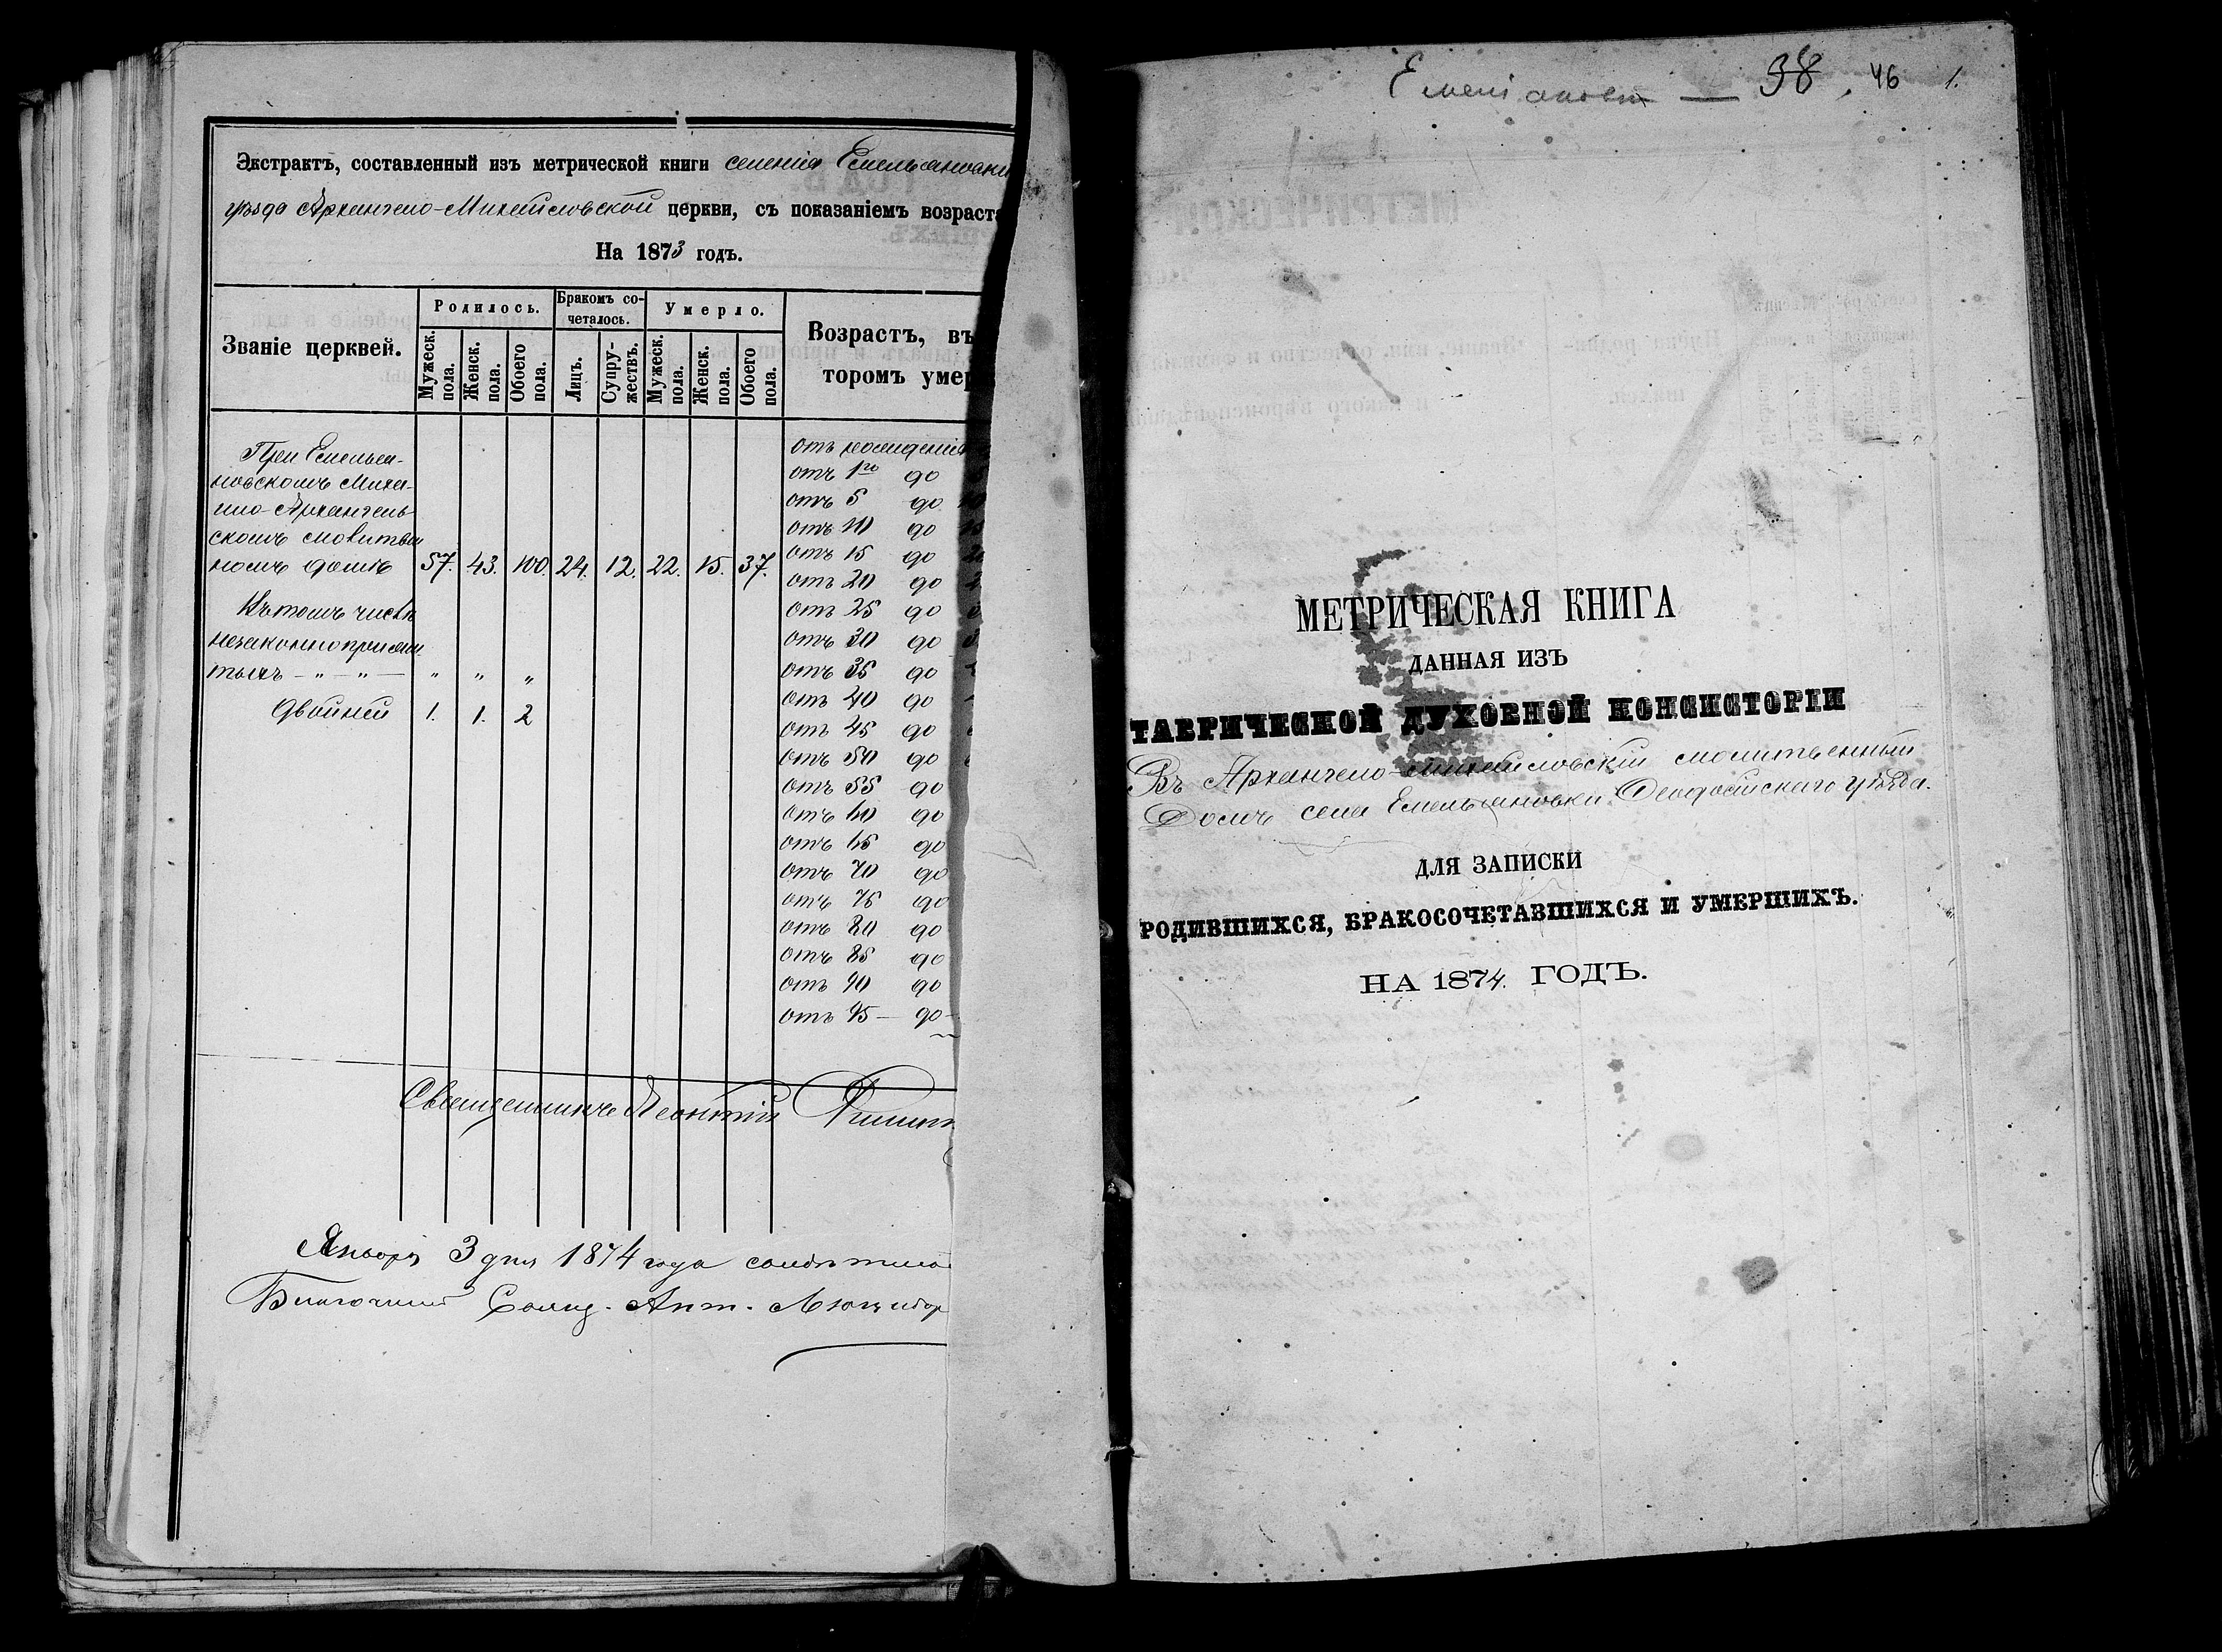 Экстрактъ, составленный изъ метрической книги селенія Емельяновки
уѣзда Архангело-Михайловской церкви, съ показаніемъ возраста
На 1873 годъ.
Званіе церквей.
Родилось.
Бракомъ со-
четалось.
Умерло.
Возрастъ, въ
торомъ умер
Мужеск. пола.
Женск. пола.
Обоего пола.
Лицъ.
Супружествъ.
Мужеск. пола.
Женск. пола.
Обоего пола.
При Емелья-
новскомъ Миха-
ило-Архангель-
скомъ молитвен
номъ домѣ 57. 43. 100. 24. 12. 22. 15. 37.
Въ томъ числѣ
незаконноприжи
тыхъ - „ - „ - „ „ „
Двойни 1. 1. 2
отъ рожденія
отъ 1го до
отъ 5 до 10
отъ 10 до 15
отъ 15 до 20
отъ 20 до
отъ 25 до
отъ 30 до
отъ 35 до
отъ 40 до
отъ 45 до
отъ 50 до
отъ 55 до
отъ 60 до
отъ 65 до
отъ 70 до
отъ 75 до
отъ 80 до
отъ 85 до
отъ 90 до
отъ 95 — до -
Священникъ Леонтій
Января 3 дня 1874 года
Благочинный Свящ. Ант.
38. 46 1.
МЕТРИЧЕСКАЯ КНИГА
ДАННАЯ ИЗЪ
ТАВРИЧЕСКОЙ ДУХОВНОЙ КОНСИСТОРІИ
Въ Архангело-Михайловскій молитвенный
Домъ села Емельяновки Феодосійскаго уѣзда.
ДЛЯ ЗАПИСКИ
РОДИВШИХСЯ, БРАКОСОЧЕТАВШИХСЯ И УМЕРШИХЪ.
НА 1874. ГОДЪ.